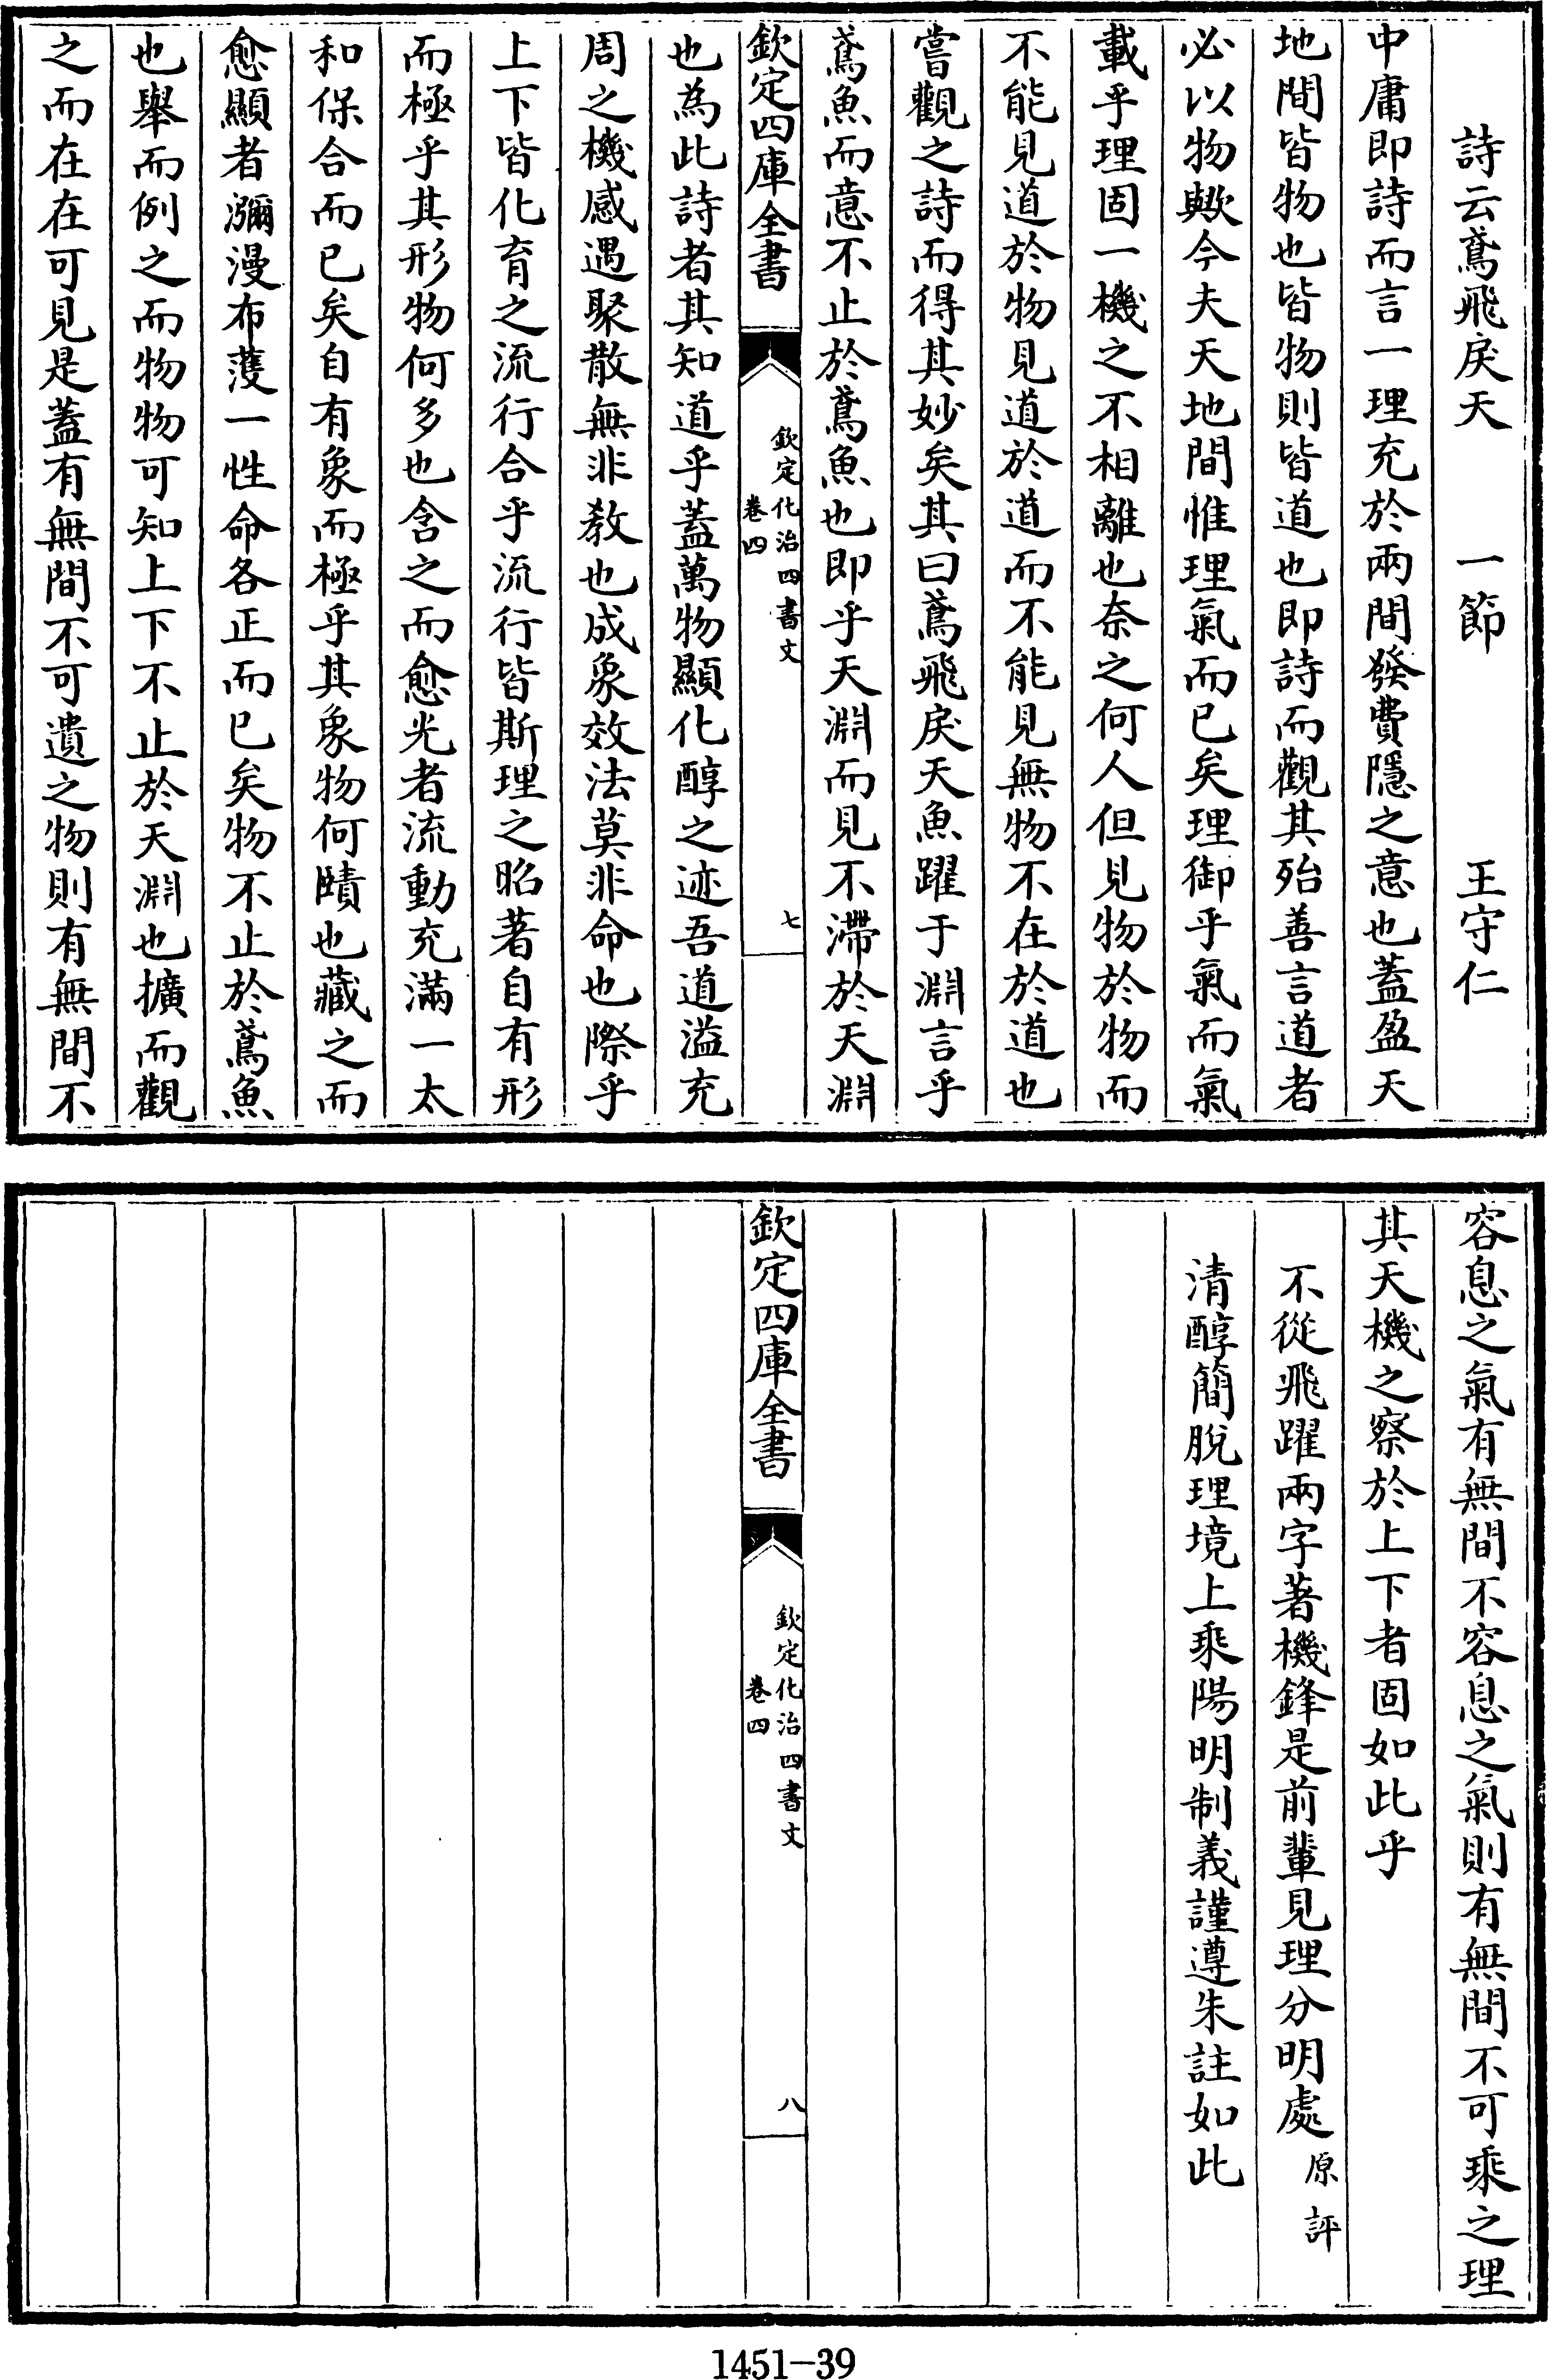 詩云鳶飛戾天　一節　王守仁
中庸即詩而言一理充於兩間發費隱之意也蓋盈天
地間皆物也皆物則皆道也即詩而觀其殆善言道者
必以物歟今夫天地間惟理氣而已矣理御乎氣而氣
載乎理固一機之不相離也奈之何人但見物於物而
不能見道於物見道於道而不能見無物不在於道也
嘗觀之詩而得其妙矣其曰鳶飛戾天魚躍于淵言乎
鳶魚而意不止於鳶魚也即乎天淵而見不滯於天淵
欽定四庫全書
欽定化治四書文
卷四
七
也為此詩者其知道乎蓋萬物顯化醇之迹吾道溢充
周之機感遇聚散無非教也成象效法莫非命也際乎
上下皆化育之流行合乎流行皆斯理之昭著自有形
而極乎其形物何多也含之而愈光者流動充滿一太
和保合而已矣自有象而極乎其象物何賾也藏之而
愈顯者瀰漫布濩一性命各正而已矣物不止於鳶魚
也舉而例之而物物可知上下不止於天淵也擴而觀
之而在在可見是蓋有無間不可遺之物則有無間不
容息之氣有無間不容息之氣則有無間不可乘之理
其天機之察於上下者固如此乎
不從飛躍兩字著機鋒是前輩見理分明處原評
清醇簡脫理境上乘陽明制義謹遵朱註如此
欽定四庫全書
欽定化治四書文
卷四
八
1451-39